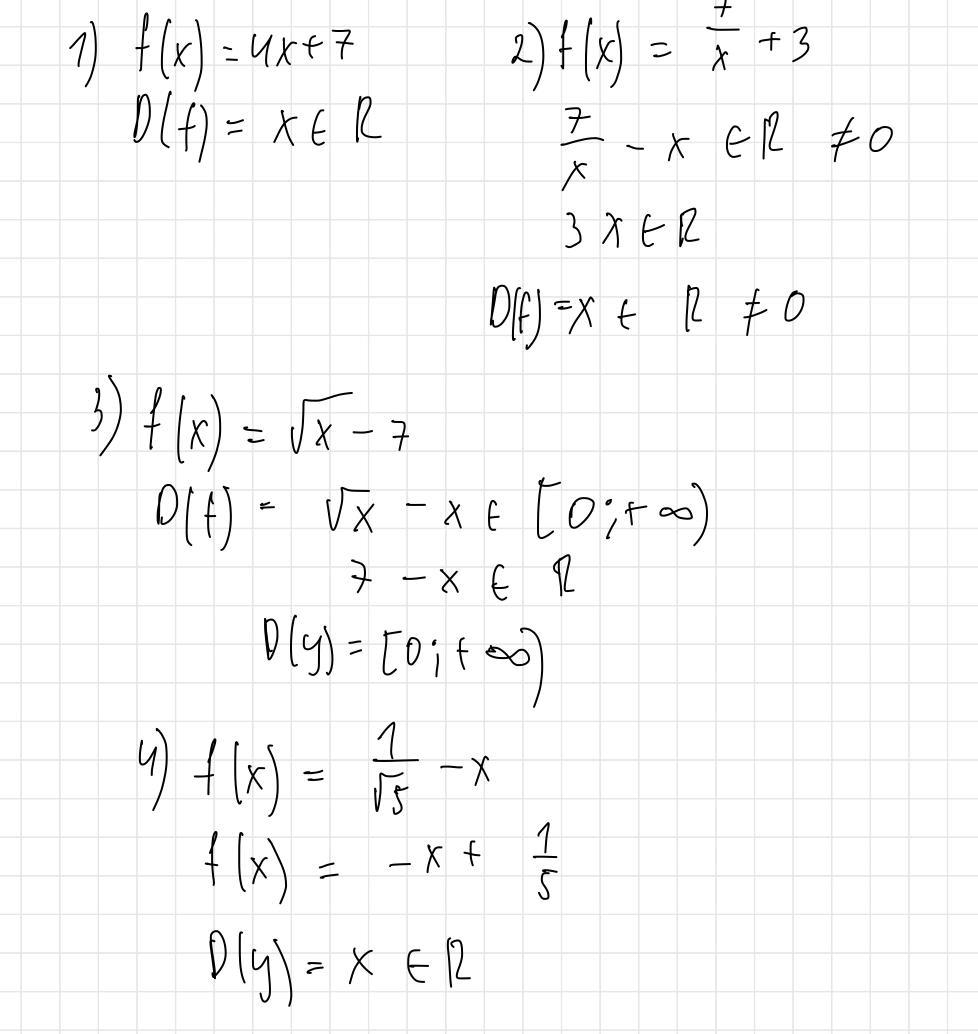 1) f(x) = 4x+7
D(f) = x ∈ R
2) f(x) = 7/x + 3
7/x - x ∈ R ≠ 0
3 x ∈ R
D(f) = x ∈ R ≠ 0
3) f(x) = √x - 7
D(f) = √x - x ∈ [0;+∞)
7 - x ∈ R
D(y) = [0;+∞)
4) f(x) = 1/√5 - x
f(x) = -x + 1/5
D(y) = x ∈ R